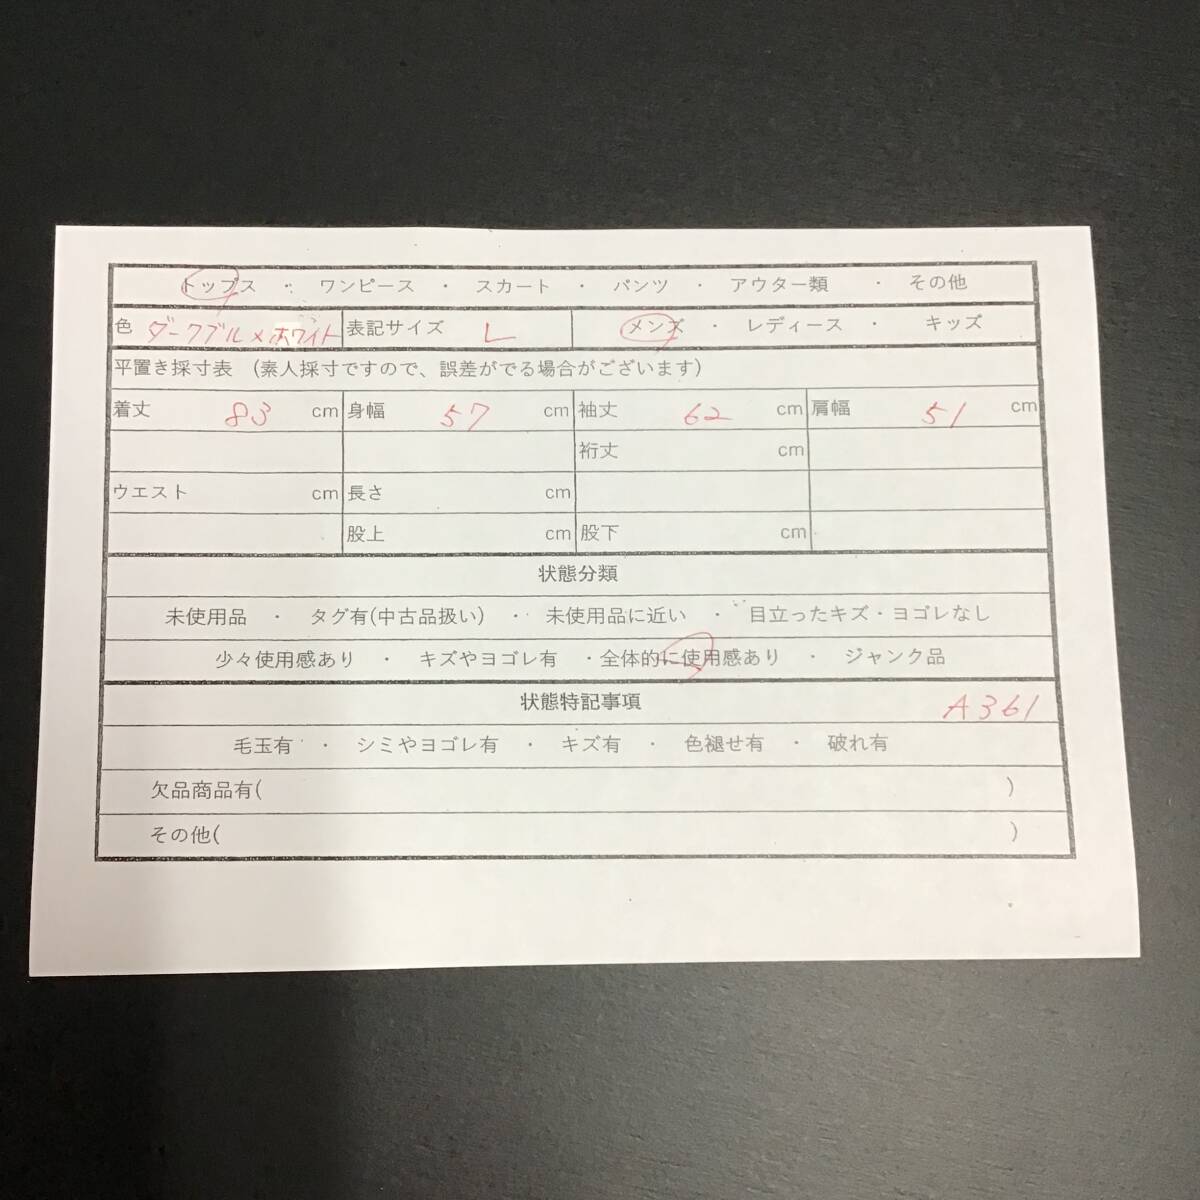 トップス ・ ワンピース ・ スカート ・ パンツ ・ アウター類 ・ その他
色 ダークブル×ホワイト 表記サイズ L メンズ ・ レディース ・ キッズ
平置き採寸表 (素人採寸ですので、誤差がでる場合がございます)
着丈 83 cm 身幅 57 cm 袖丈 62 cm 肩幅 51 cm
裄丈 cm
ウエスト cm 長さ cm
股上 cm 股下 cm
状態分類
未使用品 ・ タグ有(中古品扱い) ・ 未使用品に近い ・ 目立ったキズ・ヨゴレなし
少々使用感あり ・ キズやヨゴレ有 ・全体的に使用感あり ・ ジャンク品
状態特記事項 A361
毛玉有 ・ シミやヨゴレ有 ・ キズ有 ・ 色褪せ有 ・ 破れ有
欠品商品有( )
その他( )